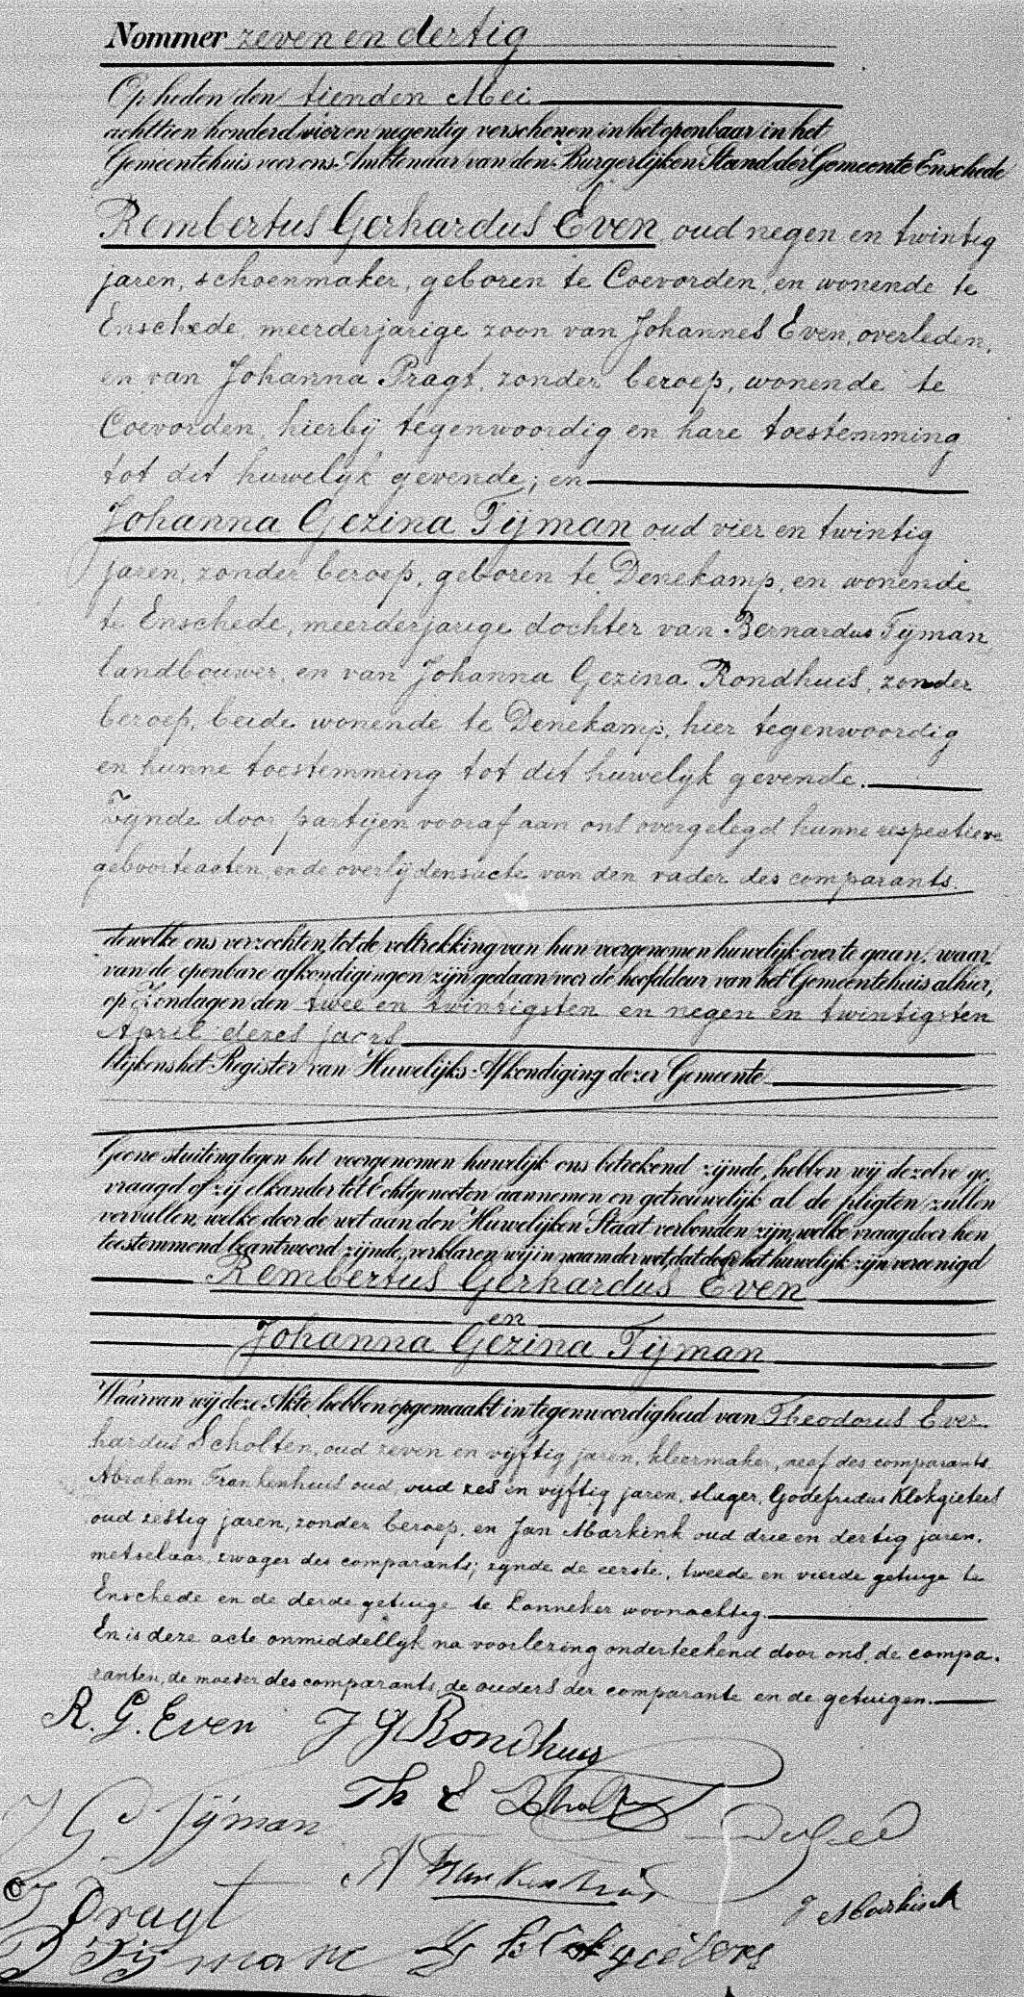 Nommer zeven en dertig
Op heden den tienden Mei
achttien honderd vier en negentig verschenen in het openbaar in het
Gemeentehuis voor ons Ambtenaar van den Burgerlijken Stand der Gemeente Enschede
Rembertus Gerhardus Even, oud negen en twintig
jaren, schoenmaker, geboren te Coevorden, en wonende te
Enschede, meerderjarige zoon van Johannes Even, overleden,
en van Johanna Pragt, zonder beroep, wonende te
Coevorden, hierbij tegenwoordig en hare toestemming
tot dit huwelijk gevende; en
Johanna Gezina Tijman oud vier en twintig
jaren, zonder beroep, geboren te Denekamp, en wonende
te Enschede, meerderjarige dochter van Bernardus Tijman
landbouwer en van Johanna Gezina Rondhuis, zonder
beroep, beide wonende te Denekamp, hier tegenwoordig
en hunne toestemming tot dit huwelijk gevende.
Zijnde door partijen vooraf aan ons overgelegd hunne respectieve
geboorteacten, en de overlijdensacte van den vader des comparants.
dewelke ons verzochten, tot de voltrekking van hun voorgenomen huwelijk over te gaan, waar-
van de openbare afkondigingen zijn gedaan voor de hoofddeur van het Gemeentehuis alhier,
op Zondagen den twee en twintigsten en negen en twintigsten
April dezes jaars
blijkens het Register van Huwelijks-Afkondiging dezer Gemeente
Geene stuiting tegen het voorgenomen huwelijk ons betrekend zijnde, hebben wij dezelve ge-
vraagd of zij elkander tot Echtgenooten aannemen en getrouwelijk al de pligten zullen
vervullen, welke door de wet aan den Huwelijken Staat verbonden zijn, welke vraag door hen
toestemmend beantwoord zijnde, verklaren wij in naam der wet, dat door het huwelijk zijn vereenigd
Rembertus Gerhardus Even
en
Johanna Gezina Tijman
Waarvan wij deze Akte hebben opgemaakt in tegenwoordigheid van Theodorus Ever-
hardus Scholten, oud zeven en vijftig jaren, kleermaker, neef des comparants
Abraham Frankenhuis oud, oud zes en vijftig jaren, slager, Godefridus Klokgieters
oud zestig jaren, zonder beroep, en Jan Markink oud drie en dertig jaren,
metselaar, zwager des comparants; zijnde de eerste, tweede en vierde getuige te
Enschede en de derde getuige te Lonneker woonachtig.
En is deze acte onmiddellijk na voorlezing onderteekend door ons, de compa-
ranten, de moeder des comparants, de ouders der comparante en de getuigen.
R. G. Even J G Rondhuis
J G Tijman Th E Scholten
A Frankenhuis
J Pragt J Markink
B Tijman G Klokgieters